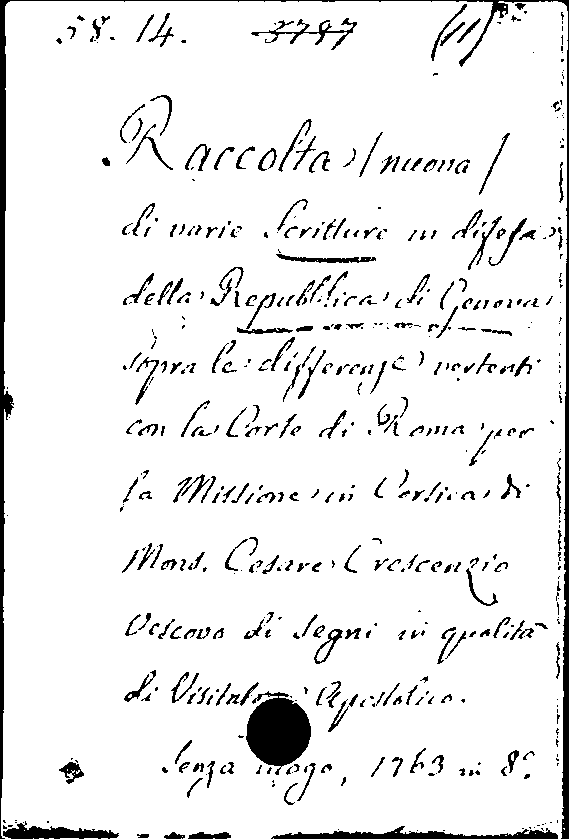 58. 14. 3787 (11)
Raccolta (nuova)
di varie Scritture in difesa
della Repubblica di Genova
sopra le differenze vertenti
con la Corte di Roma per
la Missione in Corsica di
Mons. Cesare Crescenzio
Vescovo di Segni in qualità
di Visitatore Apostolico.
Senza luogo, 1763 in 8º.